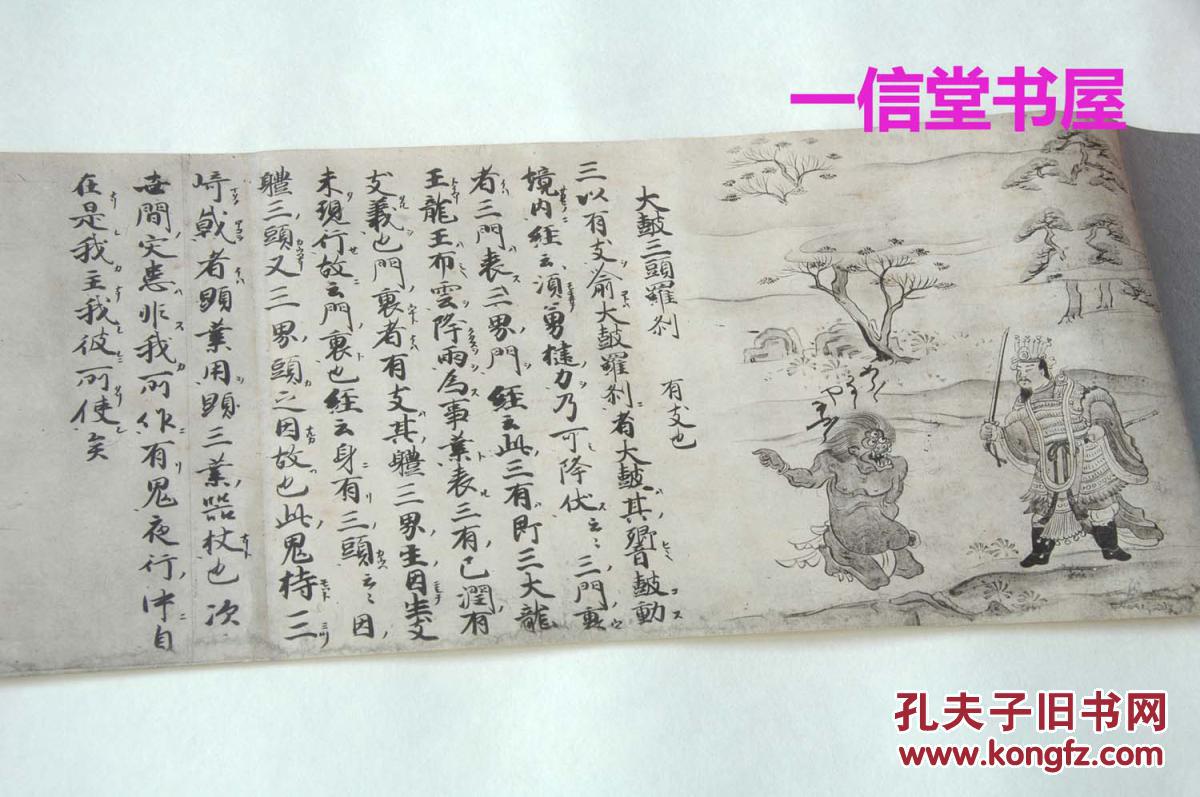 一信堂书屋
大皷三頭羅刹　有支也
三以有支喩大皷羅刹者大皷其響皷動
境内経云須勇健力乃可降伏云〻三門裏
者三門表三界門経云此三有即三大龍
王龍王布雲降雨為事業表三有已潤有
支義也門裏者有支其體三界生因
未現行故云門裏也経云身有三頭云〻因
軆三頭又三界頭之因故也此鬼持三
﨑戟者顕業用顕三業器杖也次
世間定悉非我所作有鬼夜行
在是我主我彼所使矣
孔夫子旧书网
www.kongfz.com